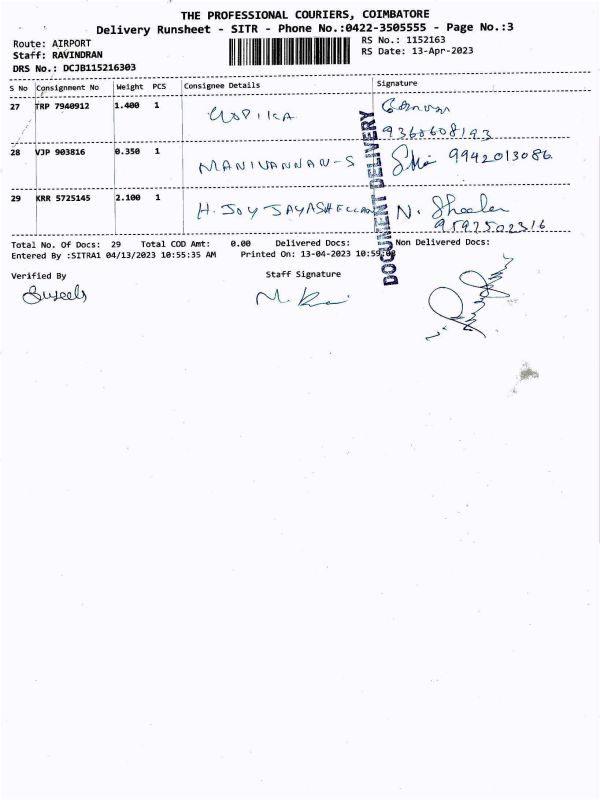 THE PROFESSIONAL COURIERS, COIMBATORE
Delivery Runsheet - SITR - Phone No.:0422-3505555 - Page No.:3
Route: AIRPORT
RS No.: 1152163
Staff: RAVINDRAN
RS Date: 13-Apr-2023
DRS No.: DCJB115216303
S No Consignment No Weight PCS Consignee Details Signature
27 TRP 7940912 1.400 1 GOPIKA
9360608193
28 VJP 903816 0.350 1 MANIVANNAN-S 9942013086
29 KRR 5725145 2.100 1 H. JOY JAYASHEELAN N. Sheela
9597502316
DOCUMENT DELIVERY
Total No. Of Docs: 29 Total COD Amt: 0.00 Delivered Docs: Non Delivered Docs:
Entered By :SITRA1 04/13/2023 10:55:35 AM Printed On: 13-04-2023 10:59:
Verified By Staff Signature